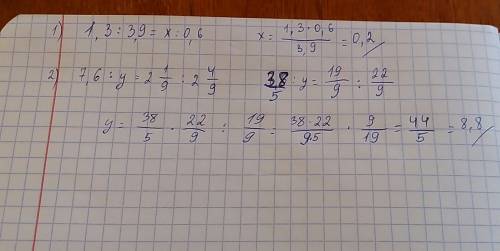 1) 1,3 : 3,9 = x : 0,6 x = 1,3·0,6/3,9 = 0,2
2) 7,6 : y = 2 1/9 : 2 4/9 38/5 : y = 19/9 : 22/9
y = 38/5 · 22/9 : 19/9 = 38·22/95 · 9/19 = 44/5 = 8,8